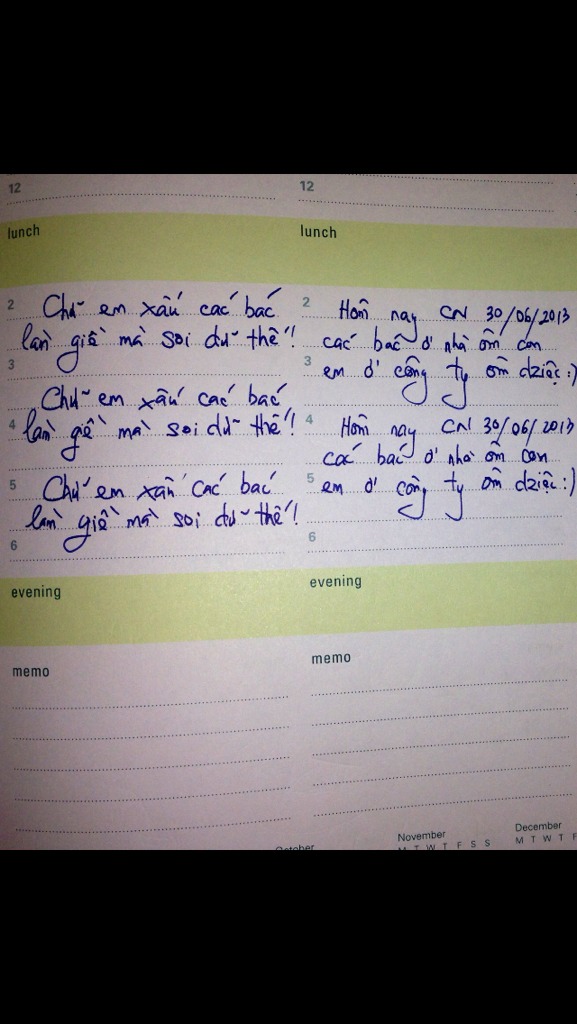 12
lunch
2 Chữ em xấu các bác
làn giề mà soi dữ thế!
3
Chữ em xấu các bác
4 làn giề mà soi dữ thế!
5 Chữ em xấu các bác
làn giề mà soi dữ thế!
6
evening
memo
October
12
lunch
2 Hôm nay CN 30/06/2013
các bác ở nhà ôm con
3 em ở công ty ôm dziệc :)
4 Hôm nay CN 30/06/2013
các bác ở nhà ôm con
5 em ở công ty ôm dziệc :)
6
evening
memo
November
M T W T F S S
December
M T W T F